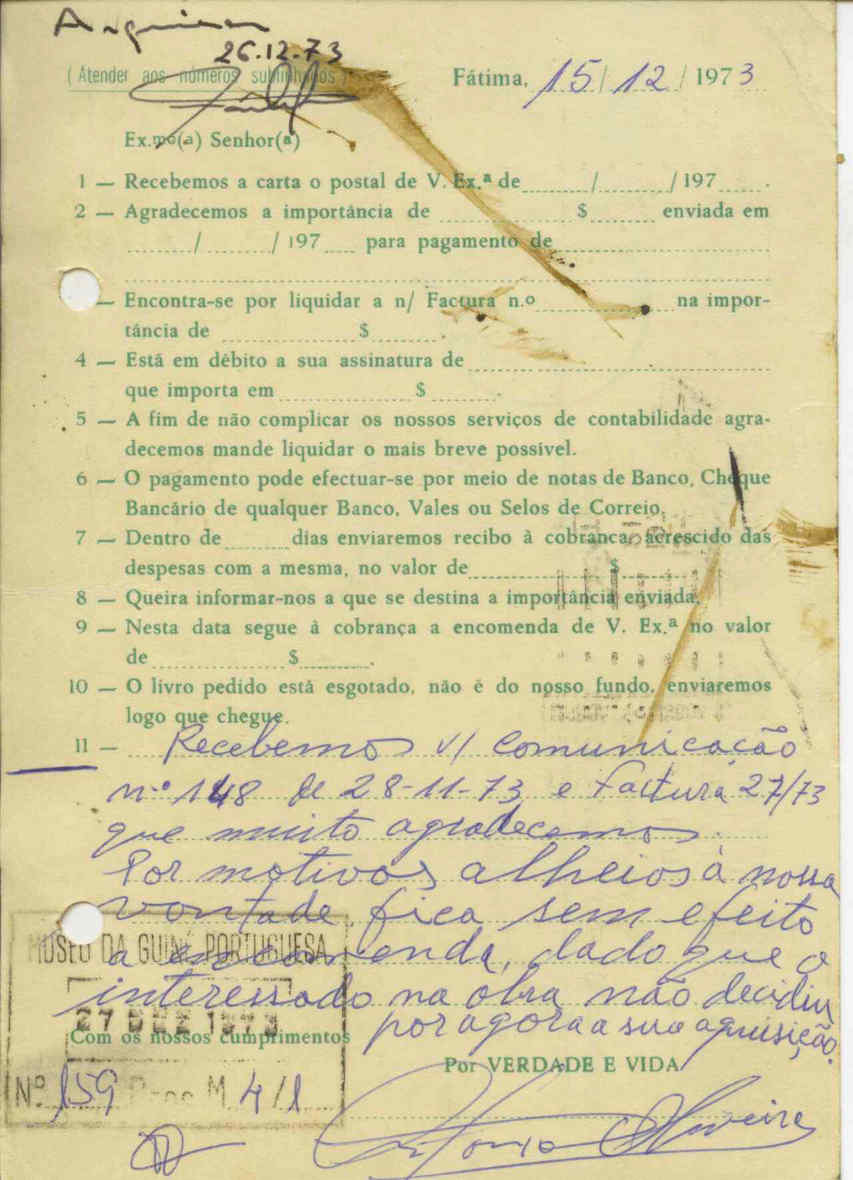 Arquivar
26.12.73
(Atender aos números sublinhados)
Fátima, 15/12/1973
Ex.mo(a) Senhor(a)
1 — Recebemos a carta o postal de V. Ex.ª de / /197 .
2 — Agradecemos a importância de $ enviada em
/ /197 para pagamento de
— Encontra-se por liquidar a n/ Factura n.o na impor-
tância de $ .
4 — Está em débito a sua assinatura de
que importa em $ .
5 — A fim de não complicar os nossos serviços de contabilidade agra-
decemos mande liquidar o mais breve possível.
6 — O pagamento pode efectuar-se por meio de notas de Banco, Cheque
Bancário de qualquer Banco, Vales ou Selos de Correio.
7 — Dentro de dias enviaremos recibo à cobrança, acrescido das
despesas com a mesma, no valor de $
8 — Queira informar-nos a que se destina a importância enviada.
9 — Nesta data segue à cobrança a encomenda de V. Ex.ª no valor
de $ .
10 — O livro pedido está esgotado, não é do nosso fundo, enviaremos
logo que chegue.
11 — Recebemos v/ comunicação
nº 148 de 28-11-73 e factura 27/73
que muito agradecemos.
Por motivos alheios à nossa
vontade fica sem efeito
a encomenda, dado que o
interessado na obra não decidiu
por agora a sua aquisição.
MUSEU DA GUINÉ PORTUGUESA
27 DEZ 1973
Nº 159 Proc M 4/1
Com os nossos cumprimentos
Por VERDADE E VIDA
António Oliveira